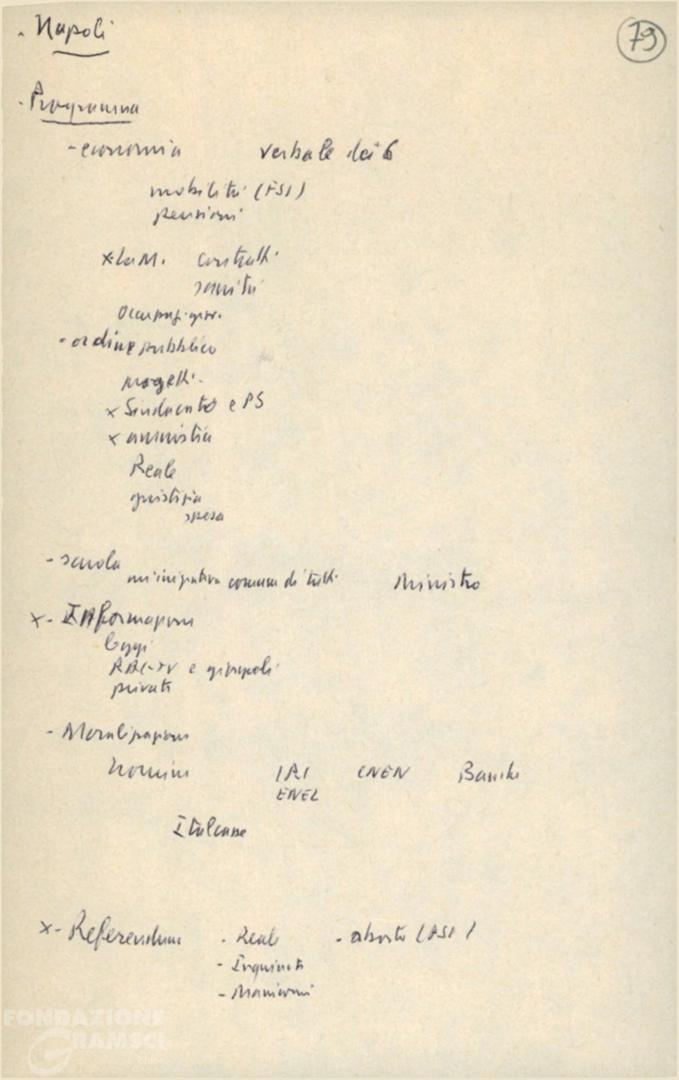 - Napoli
79
- Programma
- economia verbale dei 6
mobilità (FSI)
pensioni
x contratti
sanità
- ordine pubblico
progetti
x Sindacato e PS
x amnistia
Reale
giustizia
spesa
- scuola
comune di tutti Ministro
x- Informazione
leggi
RAI-TV e
privati
- Moralizzazione
nomine IRI CNEN Banche
ENEL
Italcasse
x- Referendum - Reale - aborto
- Inquirente
- Manicomi
FONDAZIONE
GRAMSCI